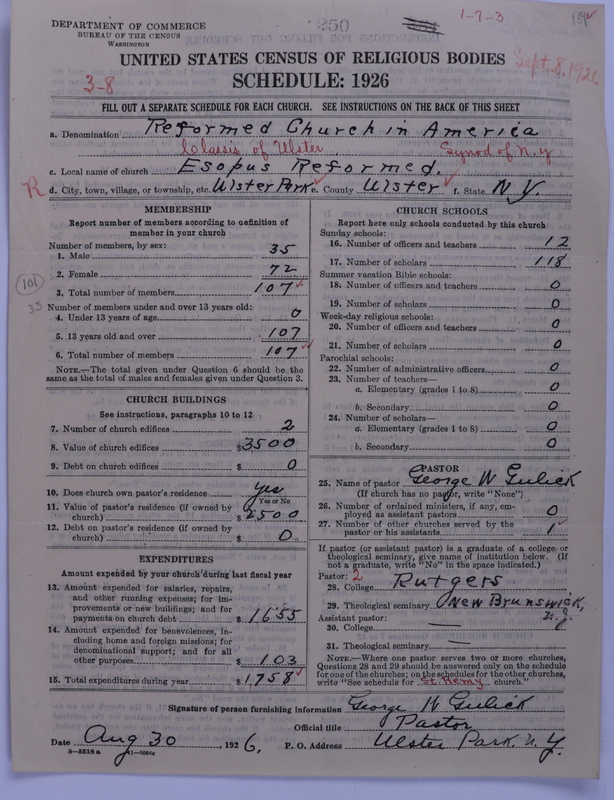 250
1-7-3
DEPARTMENT OF COMMERCE
BUREAU OF THE CENSUS
WASHINGTON
UNITED STATES CENSUS OF RELIGIOUS BODIES
Sept. 8, 1926
3-8
SCHEDULE: 1926
FILL OUT A SEPARATE SCHEDULE FOR EACH CHURCH. SEE INSTRUCTIONS ON THE BACK OF THIS SHEET
a. Denomination Reformed Church in America
Classis of Ulster Synod of N.Y
c. Local name of church Esopus Reformed.
R d. City, town, village, or township, etc. Ulster Park e. County Ulster f. State N.Y.
MEMBERSHIP
Report number of members according to definition of
member in your church
Number of members, by sex:
1. Male 35
2. Female 72
3. Total number of members 107
101
33
Number of members under and over 13 years old:
4. Under 13 years of age 0
5. 13 years old and over 107
6. Total number of members 107
NOTE.—The total given under Question 6 should be
same as the total of males and females given under Question 3.
CHURCH BUILDINGS
See instructions, paragraphs 10 to 12
7. Number of church edifices 2
8. Value of church edifices $3500
9. Debt on church edifices $ 0
10. Does church own pastor's residence Yes
Yes or No
11. Value of pastor's residence (if owned by
church) $2500
12. Debt on pastor's residence (if owned by
church) $ 0
EXPENDITURES
Amount expended by your church during last fiscal year
13. Amount expended for salaries, repairs,
and other running expenses; for im-
provements or new buildings; and for
payments on church debt $1655
14. Amount expended for benevolences, in-
cluding home and foreign missions; for
denominational support; and for all
other purposes $103
15. Total expenditures during year $1758
CHURCH SCHOOLS
Report here only schools conducted by this church
Sunday schools:
16. Number of officers and teachers 12
17. Number of scholars 118
Summer vacation Bible schools:
18. Number of officers and teachers 0
19. Number of scholars 0
Week-day religious schools:
20. Number of officers and teachers 0
21. Number of scholars 0
Parochial schools:
22. Number of administrative officers 0
23. Number of teachers—
a. Elementary (grades 1 to 8) 0
b. Secondary 0
24. Number of scholars—
a. Elementary (grades 1 to 8) 0
b. Secondary 0
PASTOR
25. Name of pastor George W Gulick
(If church has no pastor, write "None")
26. Number of ordained ministers, if any, em-
ployed as assistant pastors 0
27. Number of other churches served by the
pastor or his assistants 1
If pastor (or assistant pastor) is a graduate of a college or
theological seminary, give name of institution below. (If
not a graduate, write "No" in the space indicated.)
Pastor: 2
28. College Rutgers
29. Theological seminary New Brunswick,
N.J.
Assistant pastor:
30. College —
31. Theological seminary —
NOTE.—Where one pastor serves two or more churches,
Questions 28 and 29 should be answered only on the schedule
for one of the churches; on the schedules for the other churches,
write "See schedule for St. Remy church."
Signature of person furnishing information George W Gulick
Official title Pastor
Date Aug 30, 1926. P. O. Address Ulster Park. N.Y.
8-5518 a